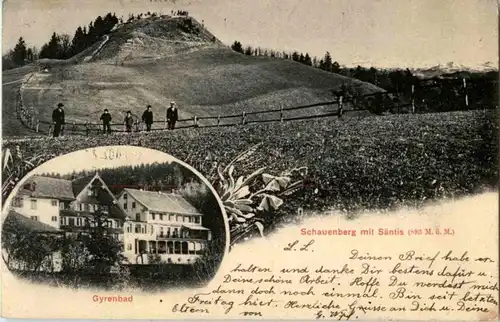 Schauenberg mit Säntis (893 M. ü. M.)
Gyrenbad
L. L. Deinen Brief habe er-
halten und danke Dir bestens dafür u.
Deine schöne Arbeit. Hoffe Du werdest mich
dann doch noch einmal. Bin seit letzten
Freitag hier. Herzliche Grüsse an Dich u. Deine
Eltern von